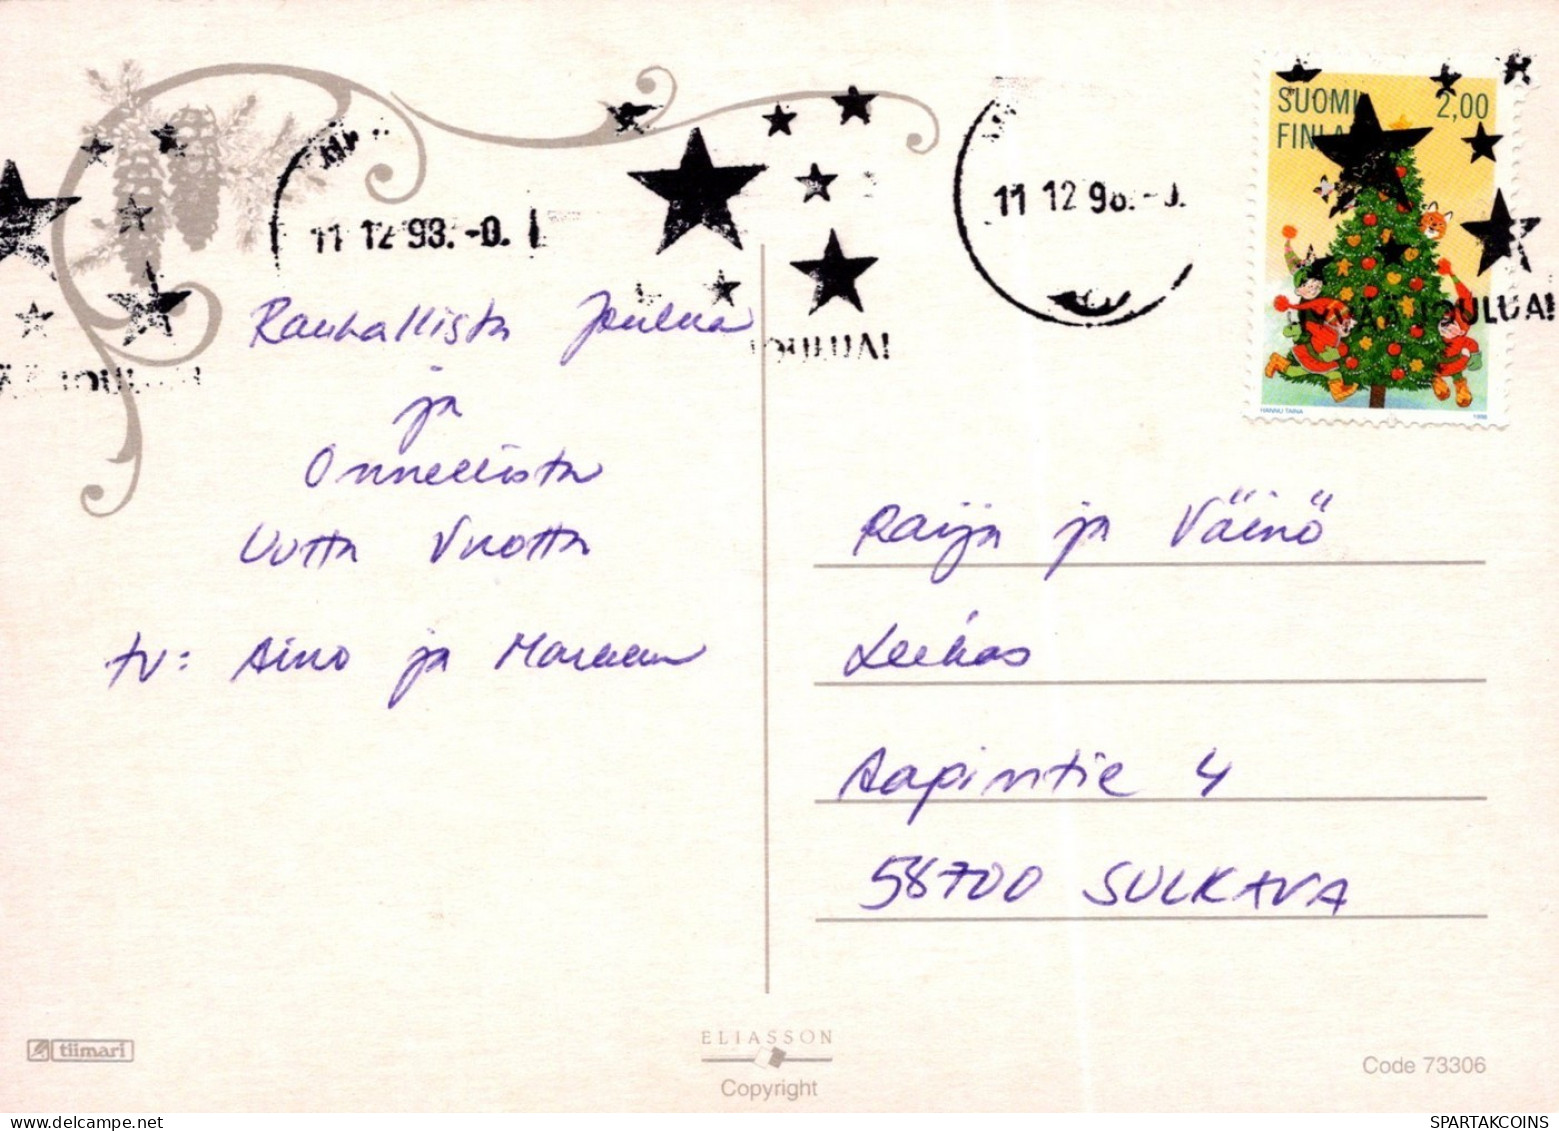 SUOMI 2,00
FINLA
11 12 98.-0.
11 12 98.-0.
JOULUA!
JOULUA!
HANNU TAINA 1998
Rauhallista Joulua
ja
Onnellista
Uutta Vuotta
tv: Aino ja
Raija ja Väinö
Leikas
Aapintie 4
58700 SULKAVA
tiimari
ELIASSON
Copyright
Code 73306
SPARTAKCOINS